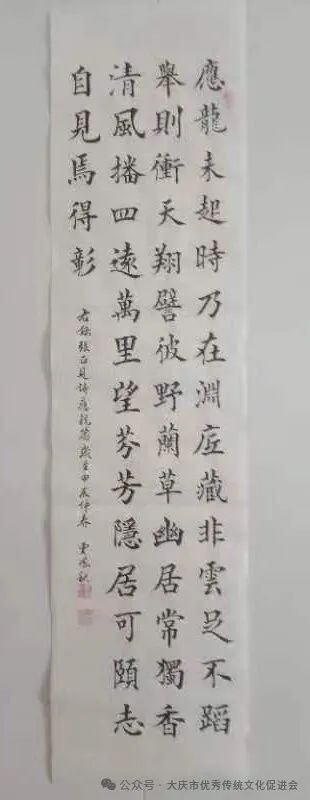 應龍未起時乃在淵底藏非雲足不蹈
舉則衝天翔譬彼野蘭草幽居常獨香
清風播四遠萬里望芬芳隱居可頤志
自見焉得彰
右錄張正見詩應龍篇歲在甲辰仲春
公众号 · 大庆市优秀传统文化促进会